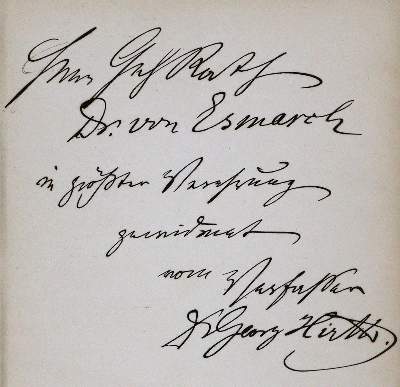 Herrn Geh Rath
Dr. von Esmarch
in größter Verehrung
gewidmet
vom Verfasser
Dr Georg Hirth.